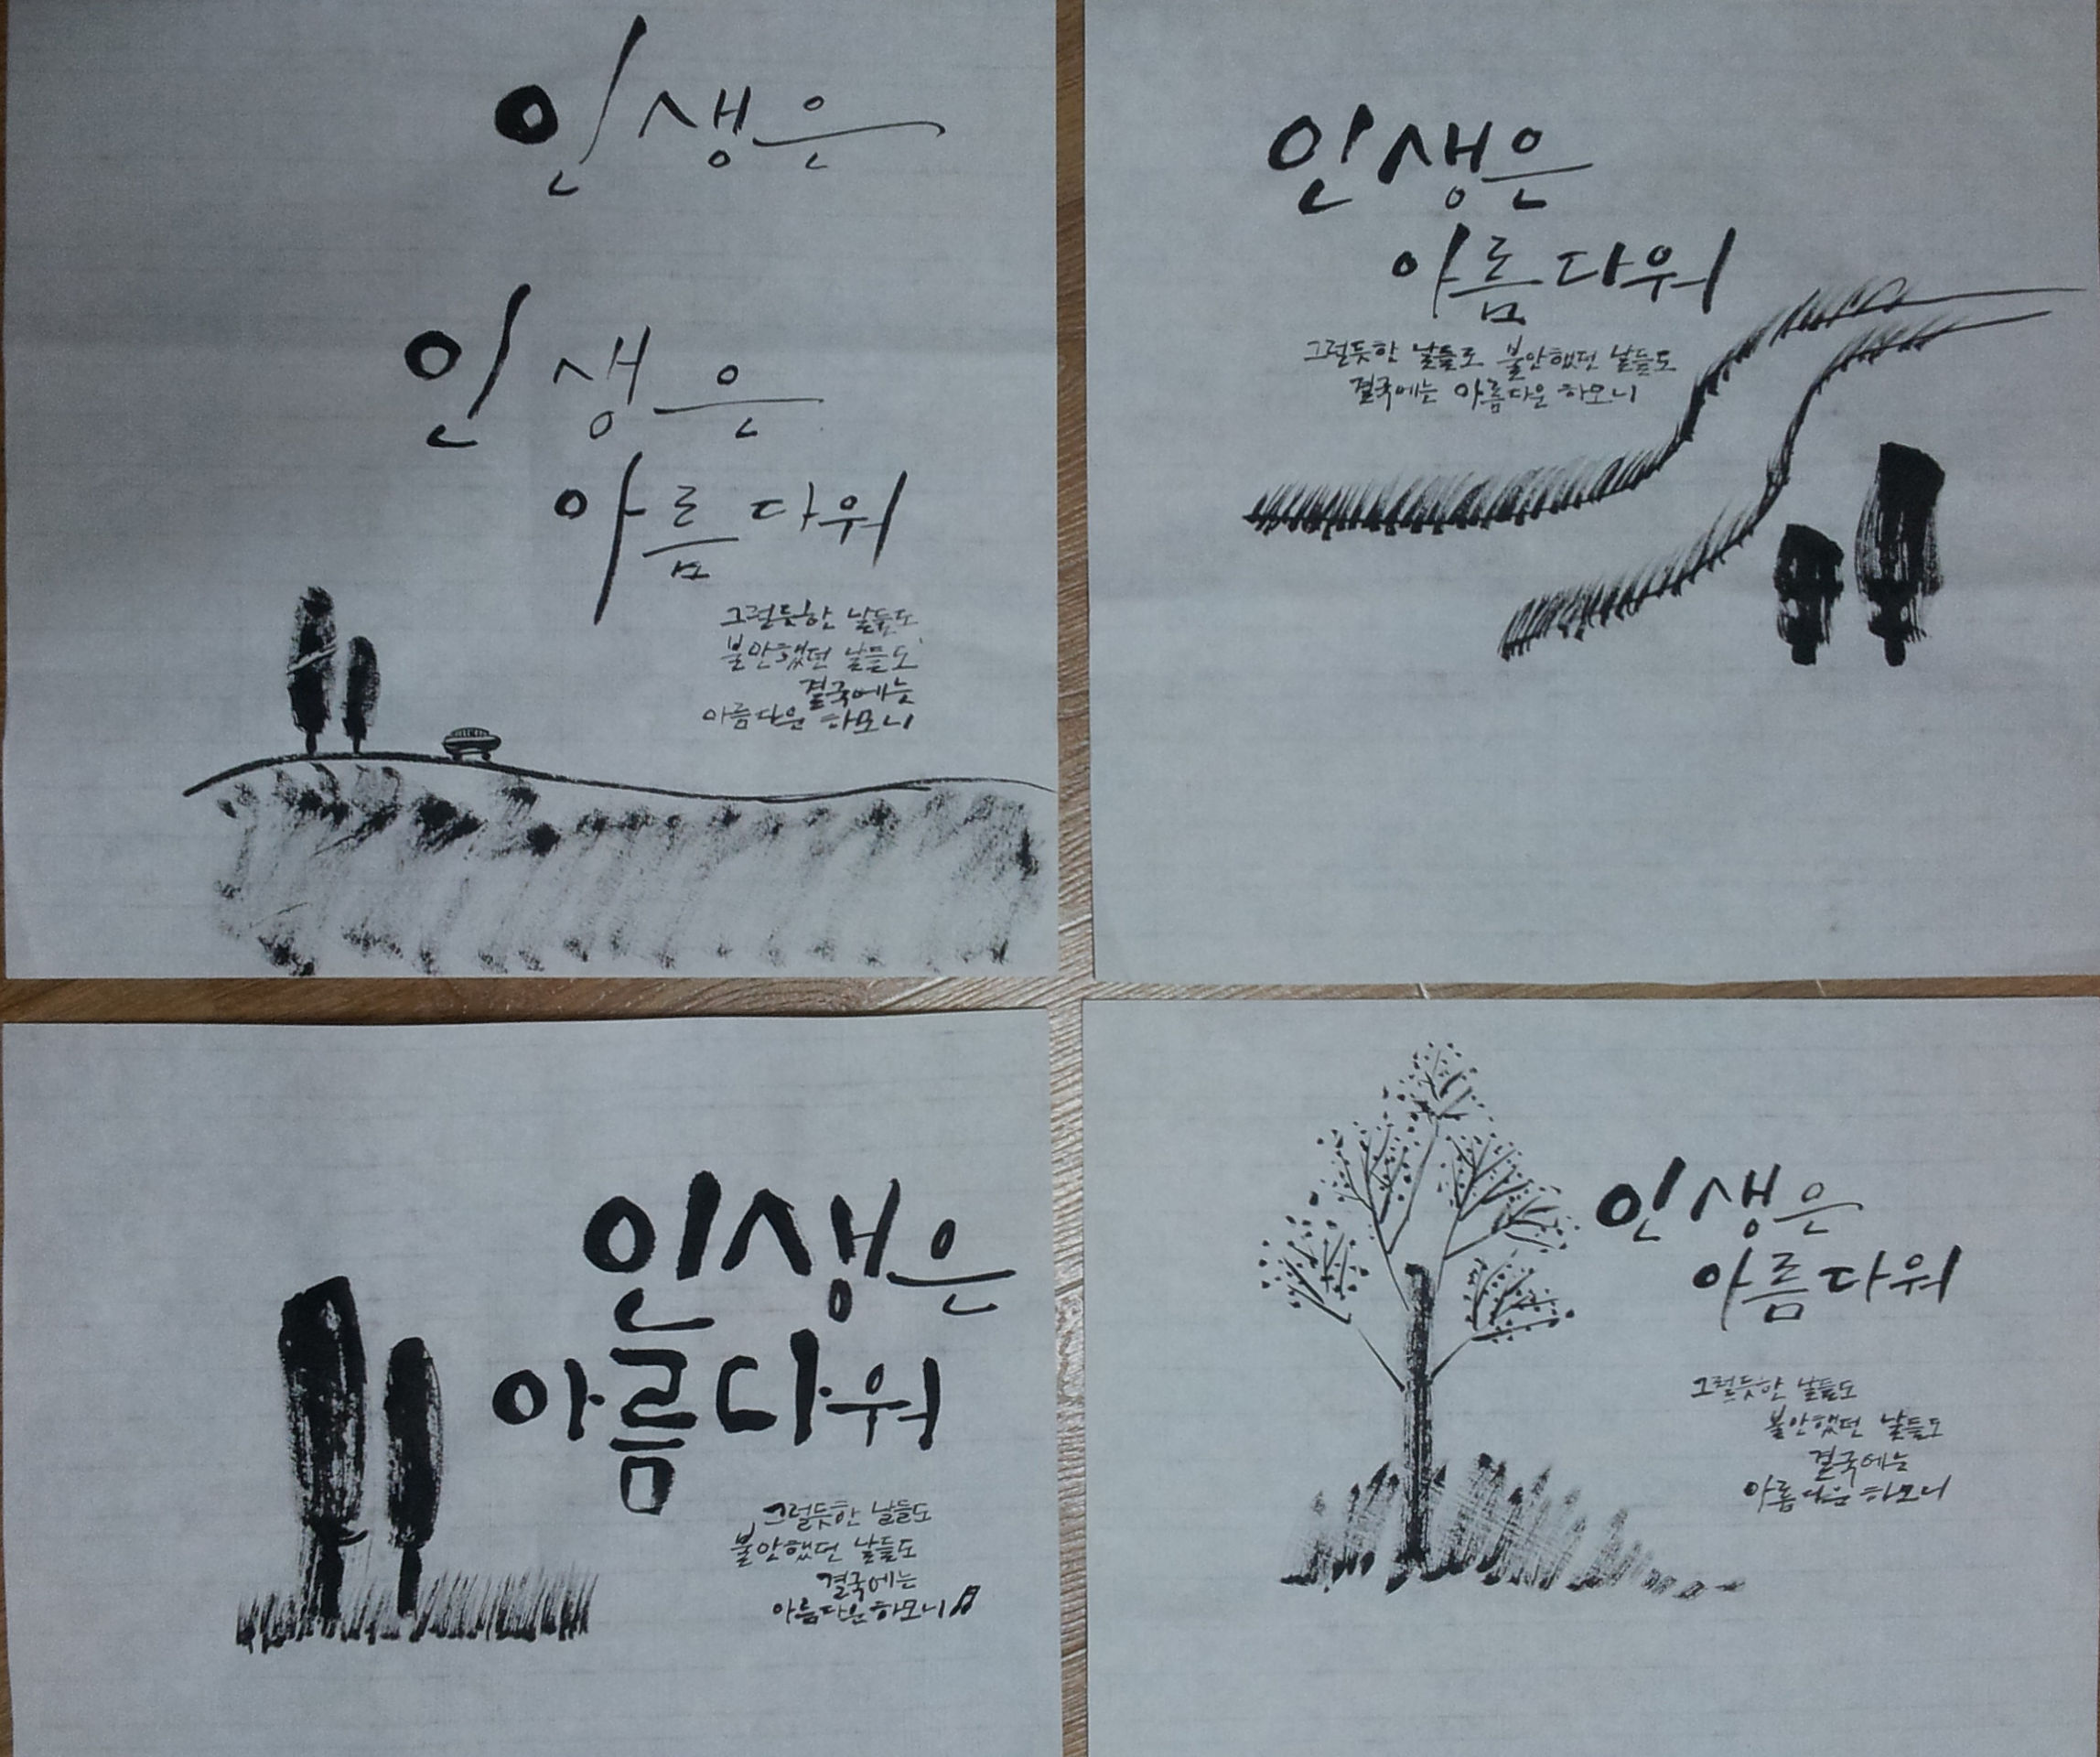 인생은
인생은
아름다워
그럴듯한 날들도
불안했던 날들도
결국에는
아름다운 하모니
인생은
아름다워
그럴듯한 날들도 불안했던 날들도
결국에는 아름다운 하모니
인생은
아름다워
그럴듯한 날들도
불안했던 날들도
결국에는
아름다운 하모니
인생은
아름다워
그럴듯한 날들도
불안했던 날들도
결국에는
아름다운 하모니